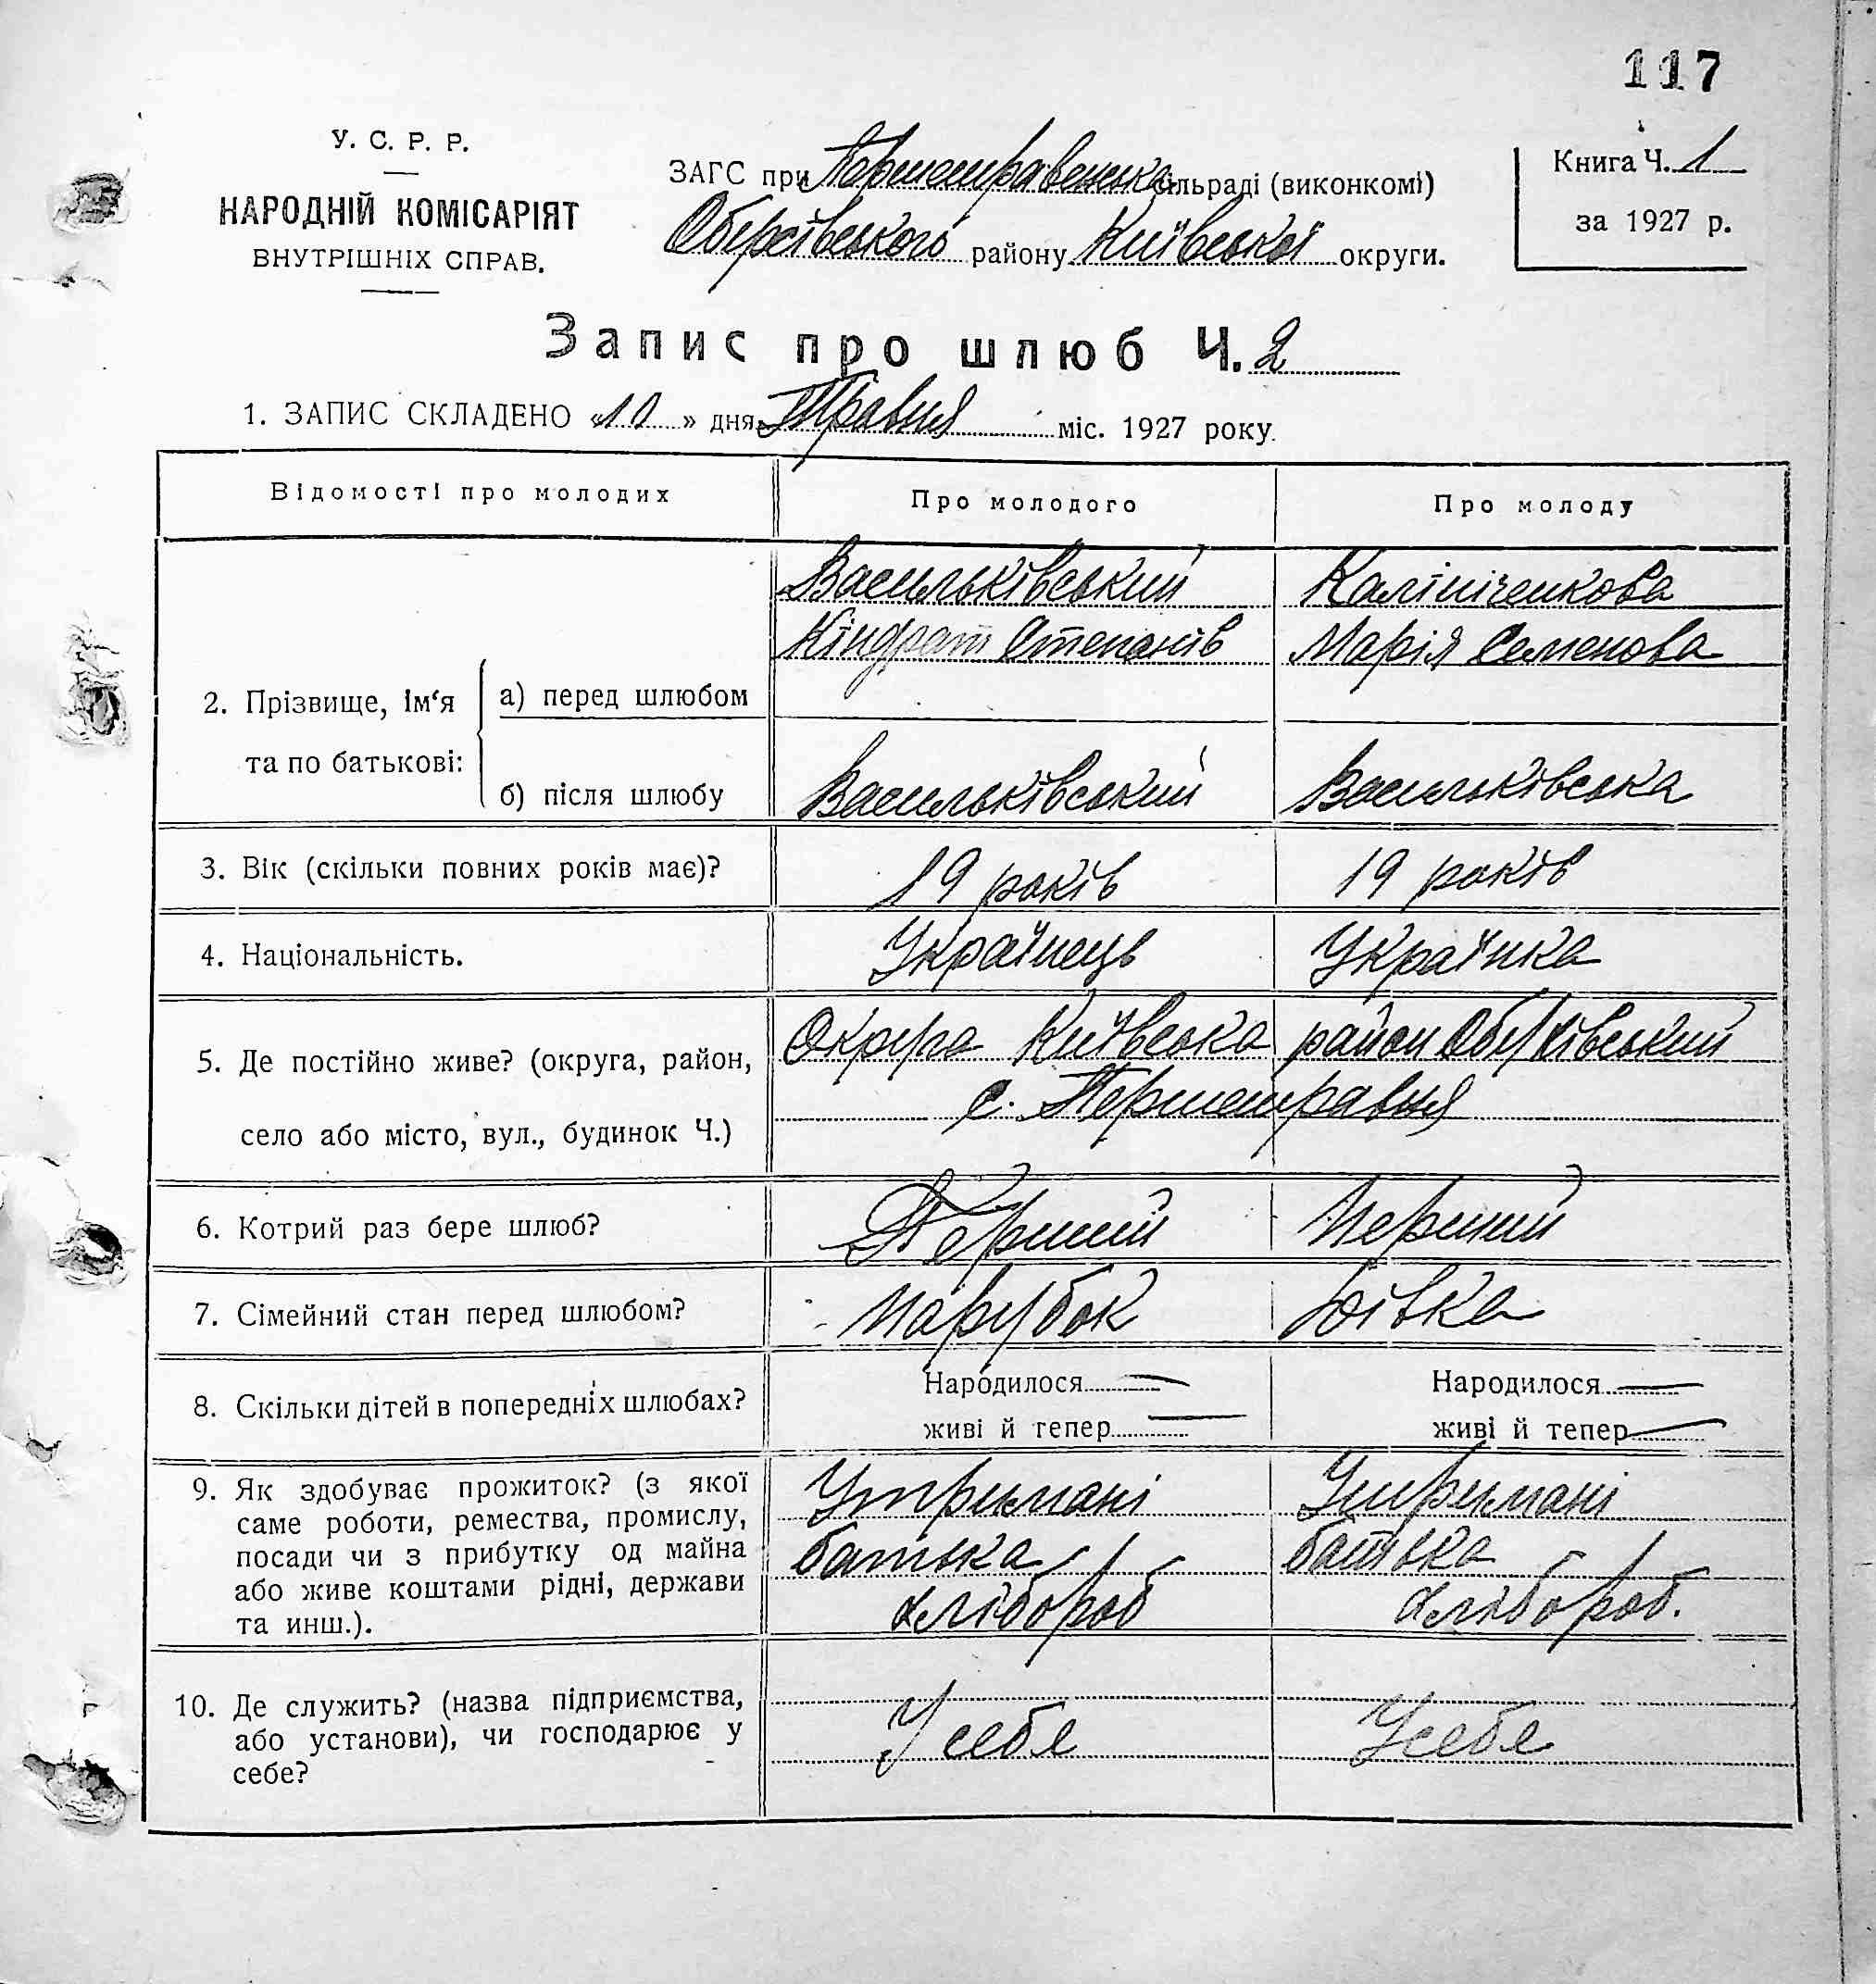 117
У. С. Р. Р.
НАРОДНІЙ КОМІСАРІЯТ
ВНУТРІШНІХ СПРАВ.
ЗАГС при Першотравенська сільраді (виконкомі)
Обухівського району Київської округи.
Книга Ч. 1
за 1927 р.
Запис про шлюб Ч. 2
1. ЗАПИС СКЛАДЕНО «10» дня Травня міс. 1927 року.
Відомості про молодих
Про молодого
Про молоду
2. Прізвище, ім‘я та по батькові:
а) перед шлюбом
Васильківський
Кіндрат Степанів
Калініченкова
Марія Семенова
б) після шлюбу
Васильківський
Васильківська
3. Вік (скільки повних років має)?
19 років
19 років
4. Національність.
Українець
Українка
5. Де постійно живе? (округа, район,
село або місто, вул., будинок Ч.)
Округа Київська район Обухівський
с. Першотравня
6. Котрий раз бере шлюб?
Перший
Перший
7. Сімейний стан перед шлюбом?
Парубок
Дівка
8. Скільки дітей в попередніх шлюбах?
Народилося —
живі й тепер —
Народилося —
живі й тепер —
9. Як здобуває прожиток? (з якої
саме роботи, ремества, промислу,
посади чи з прибутку од майна
або живе коштами рідні, держави
та инш.).
Утримані
батька
хлібороб
Утримані
батька
хлібороб.
10. Де служить? (назва підприємства,
або установи), чи господарює у
себе?
У себе
У себе